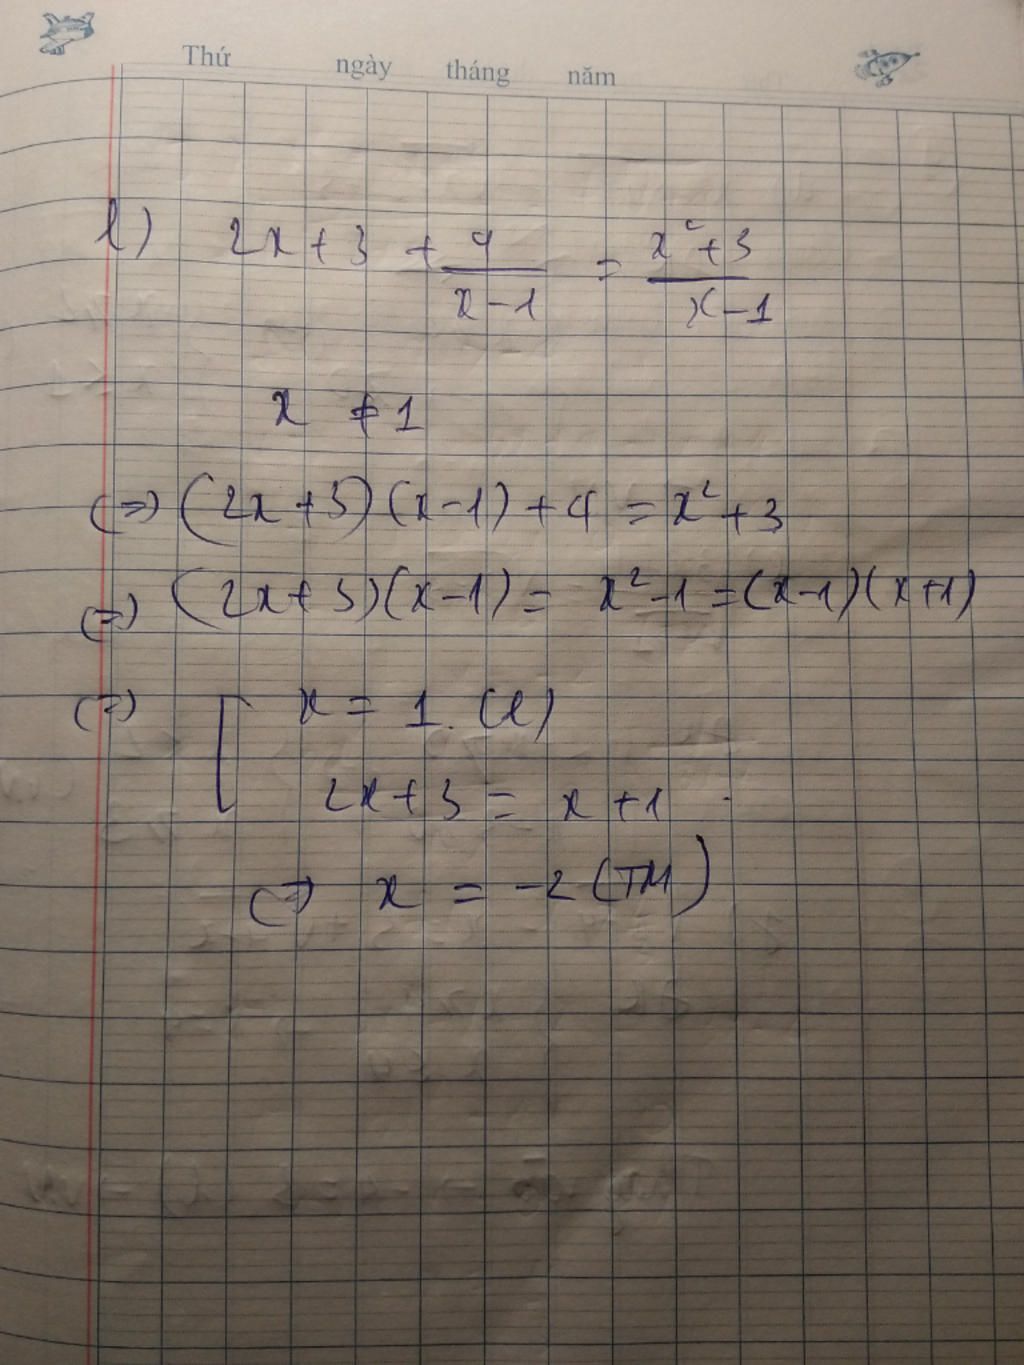 Thứ ngày tháng năm
l) 2x + 3 + 4/(x - 1) = (x² + 3)/(x - 1)
x ≠ 1
(=) (2x + 3) (x - 1) + 4 = x² + 3
(=) (2x + 3) (x - 1) = x² - 1 = (x - 1) (x + 1)
(=) [ x = 1. (l)
2x + 3 = x + 1
(=) x = -2 (TM)